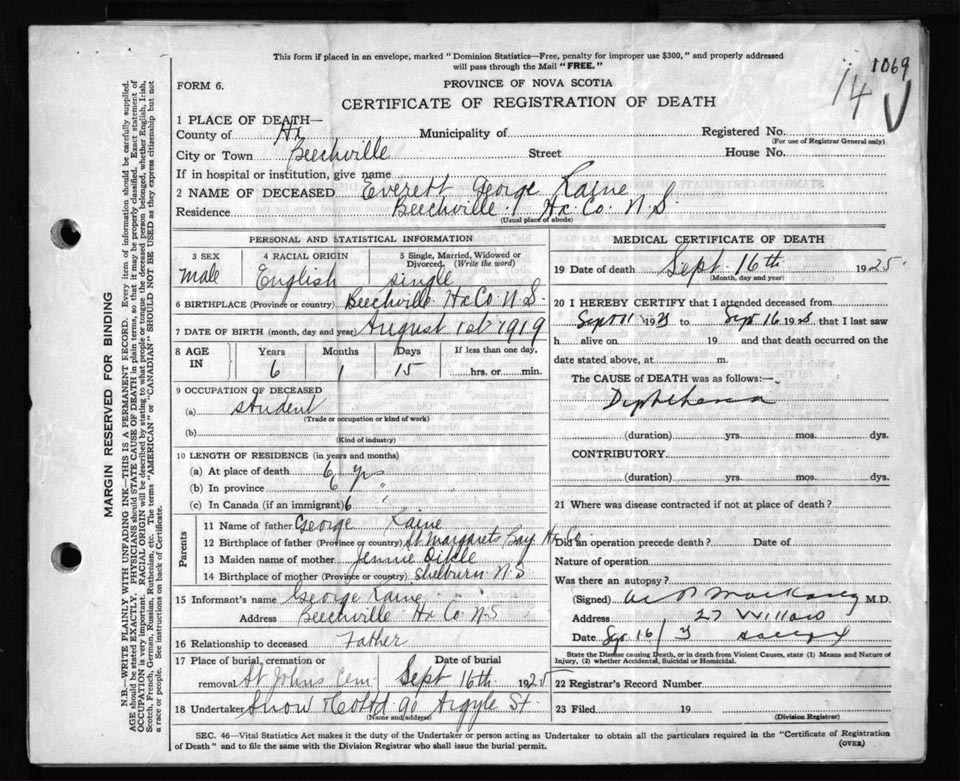 This form if placed in an envelope, marked "Dominion Statistics—Free, penalty for improper use $300," and properly addressed
will pass through the Mail "FREE."
1069
14
FORM 6.
PROVINCE OF NOVA SCOTIA
CERTIFICATE OF REGISTRATION OF DEATH
1 PLACE OF DEATH—
County of Hx Municipality of Registered No.
(For use of Registrar General only)
City or Town Beechville Street House No.
If in hospital or institution, give name
2 NAME OF DECEASED Everett George
Residence Beechville Hx Co. N.S.
(Usual place of abode)
PERSONAL AND STATISTICAL INFORMATION
3 SEX 4 RACIAL ORIGIN 5 Single, Married, Widowed or Divorced. (Write the word)
male English single
6 BIRTHPLACE (Province or country) Beechville Hx Co N.S.
7 DATE OF BIRTH (month, day and year) August 1st 1919
8 AGE IN Years Months Days If less than one day,
6 1 15 hrs. or min.
9 OCCUPATION OF DECEASED
(a) student
(Trade or occupation or kind of work)
(b)
(Kind of industry)
10 LENGTH OF RESIDENCE (in years and months)
(a) At place of death 6 yrs
(b) In province 6 "
(c) In Canada (if an immigrant) 6 "
Parents
11 Name of father George
12 Birthplace of father (Province or country) St. Margarets Bay Hx Co
13 Maiden name of mother Jennie
14 Birthplace of mother (Province or country) Shelburn N.S
15 Informant's name George
Address Beechville Hx Co N.S
16 Relationship to deceased Father
17 Place of burial, cremation or removal St Johns Cem Date of burial Sept 16th 1925
18 Undertaker Snow & Co Ltd 90 Argyle St.
(Name and address)
MEDICAL CERTIFICATE OF DEATH
19 Date of death Sept. 16th 1925
(Month, day and year)
20 I HEREBY CERTIFY that I attended deceased from
Sept 11 1925 to Sept 16 1925 that I last saw
h alive on 19 and that death occurred on the
date stated above, at m.
The CAUSE of DEATH was as follows:—
(duration) yrs. mos. dys.
CONTRIBUTORY
(duration) yrs. mos. dys.
21 Where was disease contracted if not at place of death?
Did an operation precede death? Date of
Nature of operation
Was there an autopsy?
(Signed) M.D.
Address 27 Willow
Date Sep. 16
State the Disease causing Death, or in death from Violent Causes, state (1) Means and Nature of
Injury, (2) whether Accidental, Suicidal or Homicidal.
22 Registrar's Record Number
23 Filed 19
(Division Registrar)
SEC. 46—Vital Statistics Act makes it the duty of the Undertaker or person acting as Undertaker to obtain all the particulars required in the "Certificate of Registration
of Death" and to file the same with the Division Registrar who shall issue the burial permit.
(OVER)
MARGIN RESERVED FOR BINDING
N.B.—WRITE PLAINLY WITH UNFADING INK—THIS IS A PERMANENT RECORD. Every item of information should be carefully supplied.
AGE should be stated EXACTLY. PHYSICIANS should state CAUSE OF DEATH in plain terms, so that it may be properly classified. Exact statement of
OCCUPATION is very important. RACIAL ORIGIN will be described by stating to what people or tongue the deceased person belonged, whether English, Irish,
Scotch, French, German, Russian, Ruthenian, etc. The terms "AMERICAN" or "CANADIAN" SHOULD NOT BE USED as they express citizenship but not
a race or people. See instructions on back of Certificate.